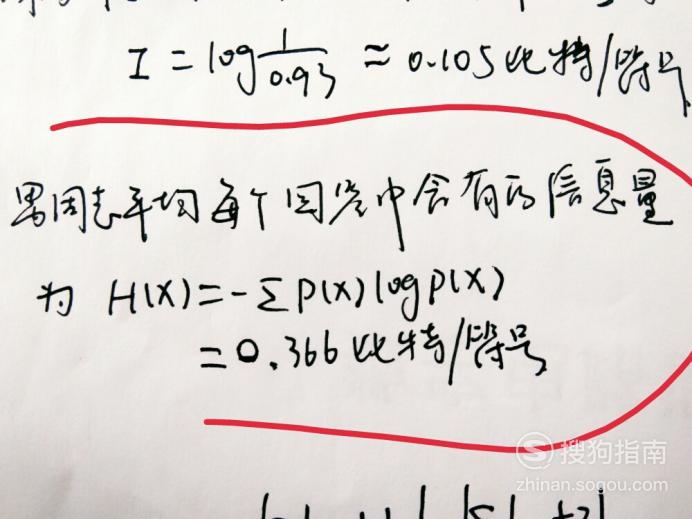 I = log 1/0.93 ≈ 0.105比特/符号
男同志平均每个回答中含有的信息量
为 H(X) = -Σ P(X) log P(X)
= 0.366比特/符号
搜狗指南
zhinan.sogou.com